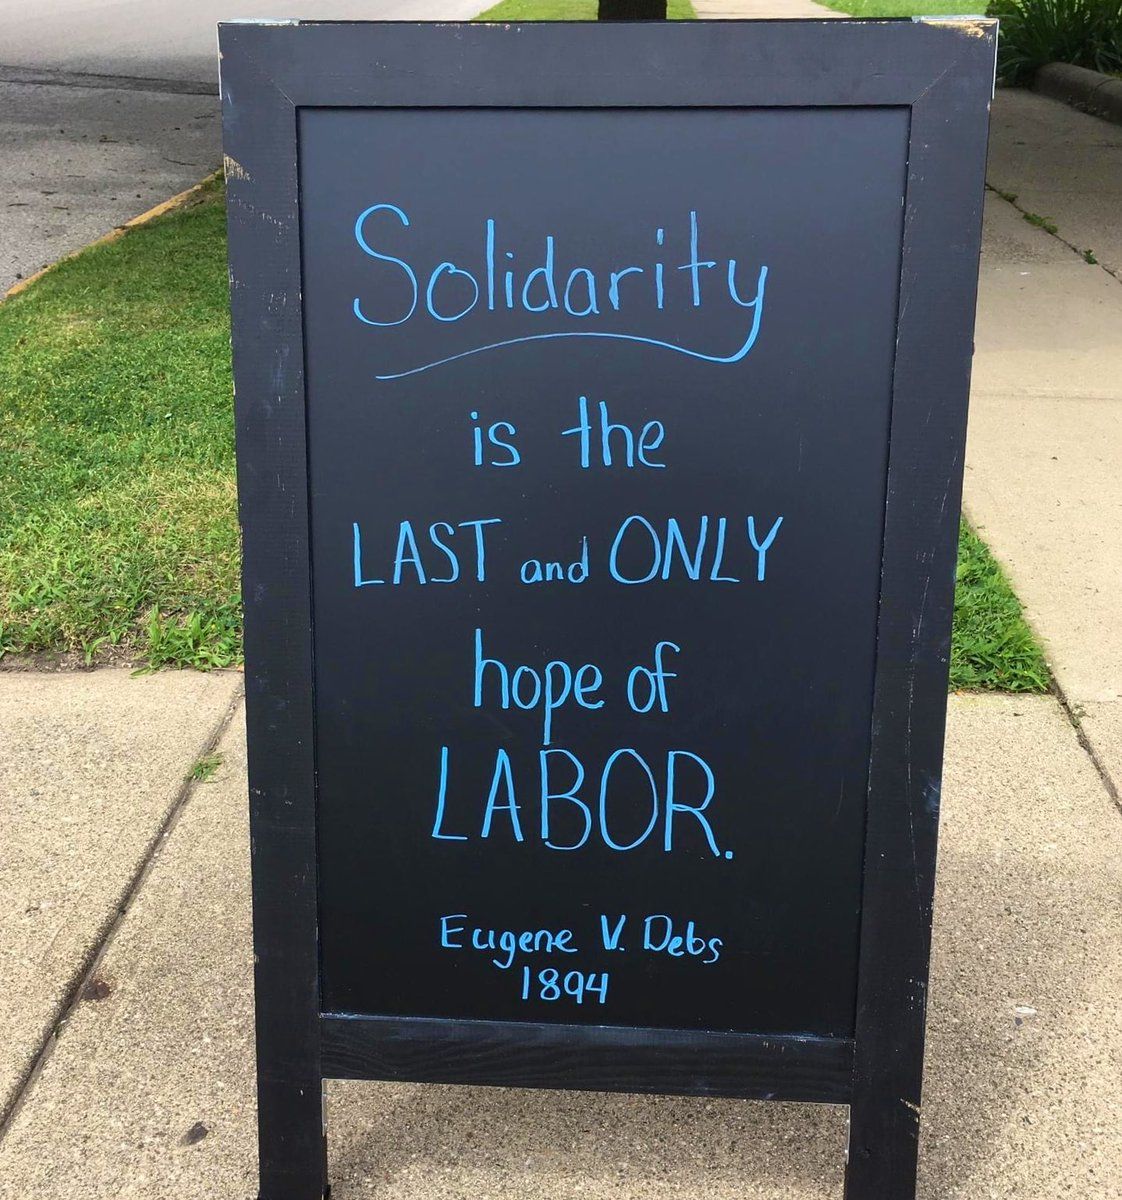 Solidarity
is the
LAST and ONLY
hope of
LABOR.
Eugene V. Debs
1894